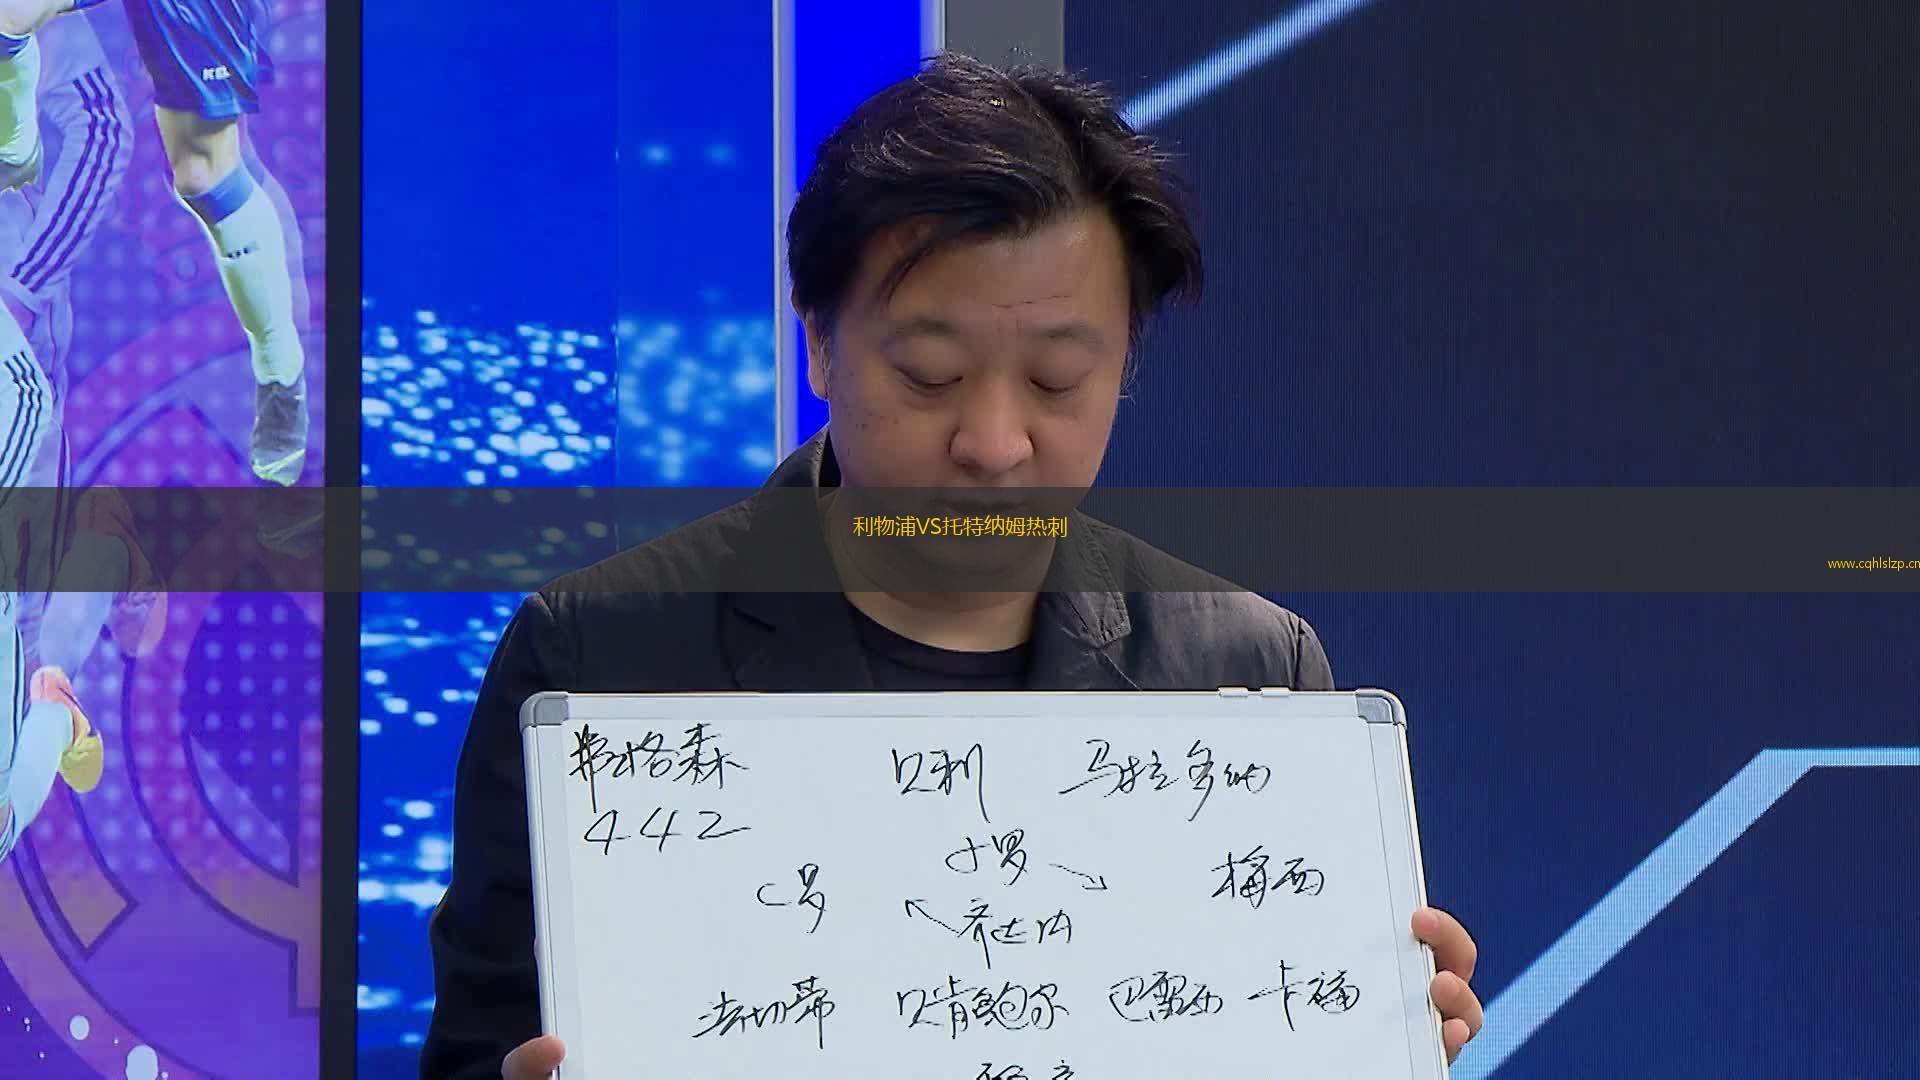 利物浦VS托特纳姆热刺
www.cqhlslzp.cn
弗格森 贝利 马拉多纳
442
小罗
C罗 梅西
齐达内
法切蒂 贝肯鲍尔 巴雷西 卡福